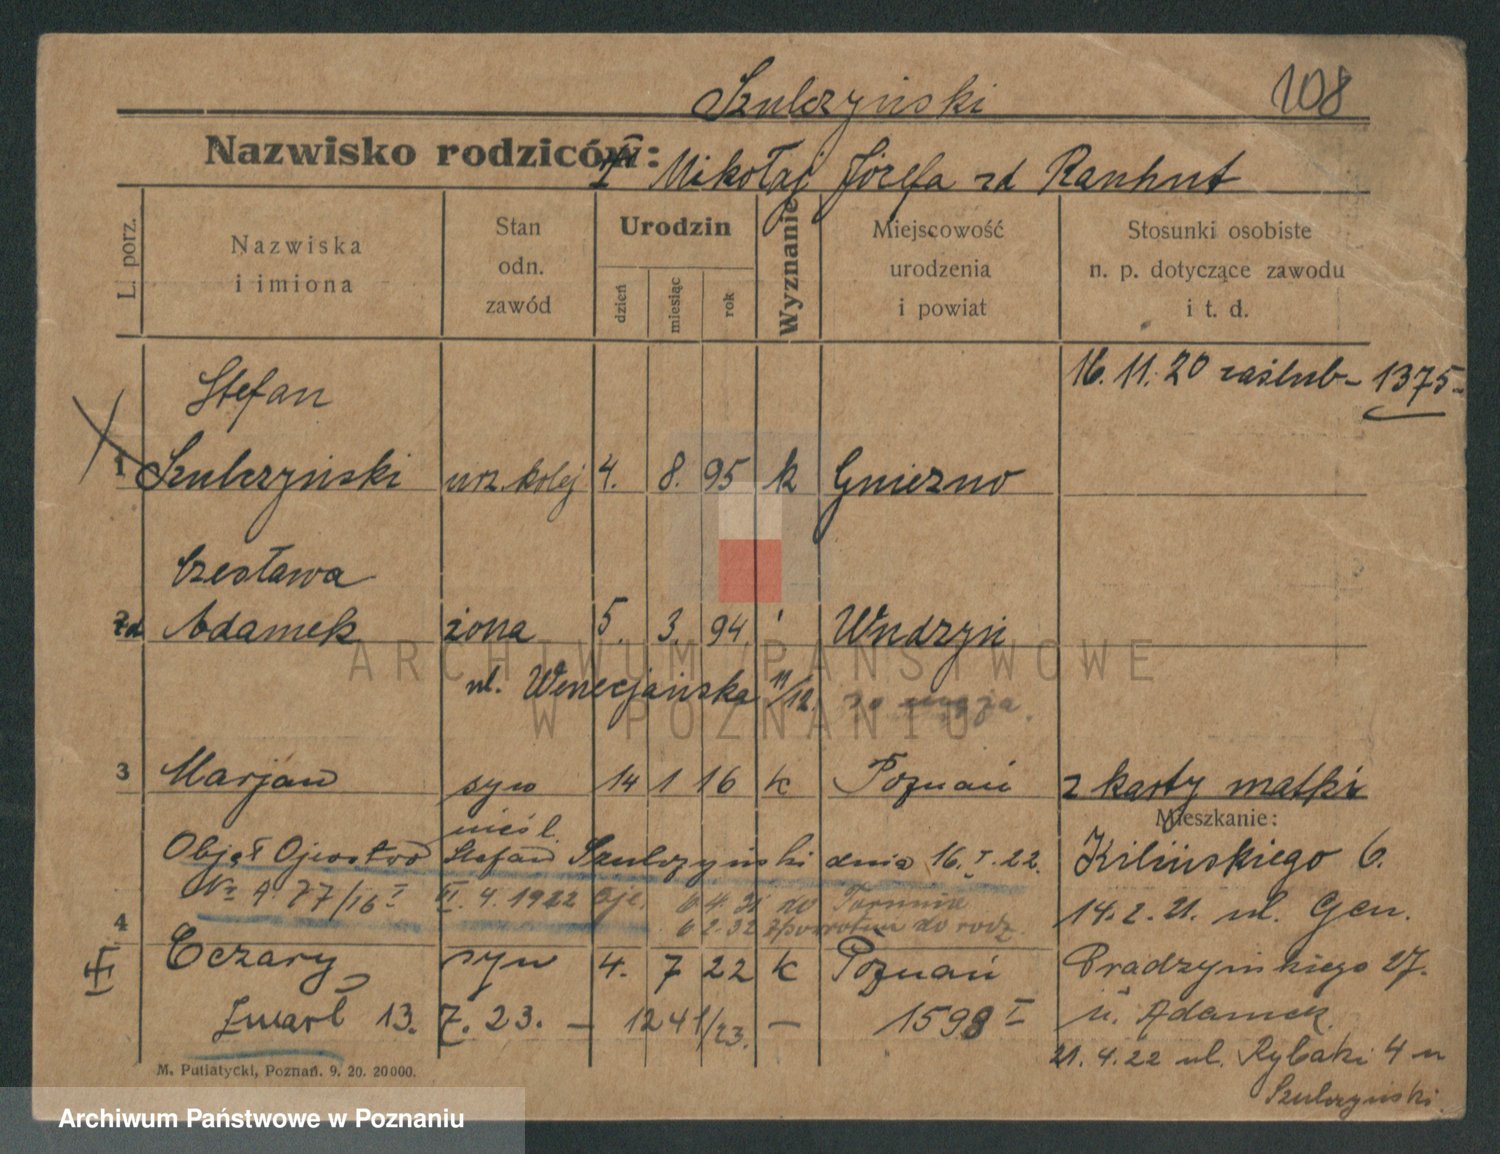 Szulczyński
108
Nazwisko rodziców: Mikołaj Józefa zd Rauhut
L. porz.
Nazwiska i imiona
Stan odn. zawód
Urodzin
dzień
miesiąc
rok
Wyznanie
Miejscowość urodzenia i powiat
Stosunki osobiste n. p. dotyczące zawodu i t. d.
Stefan
16. 11. 20 zaślub - 1375 -
1 Szulczyński urz. kolej 4. 8. 95 k Gniezno
Czesława
zd Adamek żona 5. 3. 94. Wudzyń
ul. Wenecjańska 11/12.
3 Marjan syn 14 1 16 k Poznań z karty matki
nieśl.
Mieszkanie:
Objął Ojcostwo Stefan Szulczyński dnia 16. I. 22. Kilińskiego 6.
№ 4 77/16 I 4. 1922 do
14. 2. 21. ul. Gen.
2. 32 zpowrotem do rodz.
4 Cezary syn 4. 7 22 k Poznań Prądzyńskiego 27.
Zmarł 13. 7. 23. - 1241/23. - 1598 I u. Adamek
21. 4. 22 ul. Rybaki 4 u
Szulczyński
M. Putiatycki, Poznań. 9. 20. 20000.
ARCHIWUM PAŃSTWOWE
W POZNANIU
Archiwum Państwowe w Poznaniu